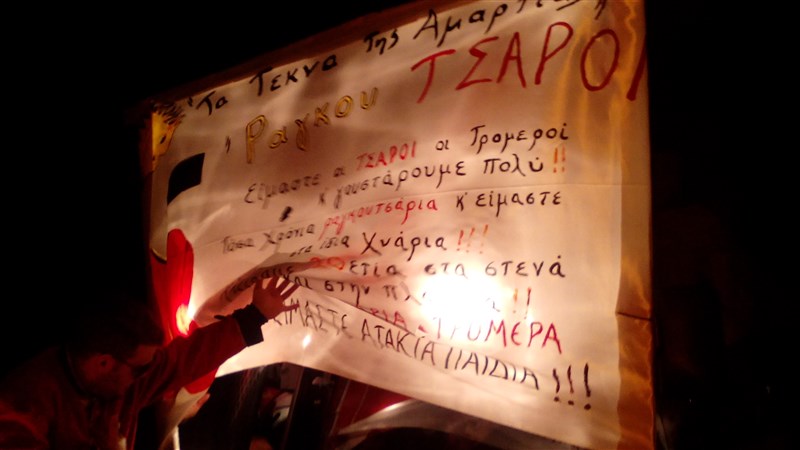 Τα Τεκνα της Αμαρτίας
Ραγκου ΤΣΑΡΟΙ
Είμαστε οι ΤΣΑΡΟΙ οι Τρομεροί
κ' γουστάρουμε Πολύ!!
Τόσα Χρόνια ραγκουτσάρια κ' είμαστε
στα ίδια Χνάρια!!!
ετία στα στενά
στην !!
ΤΡΟΜΕΡΑ
ΕΙΜΑΣΤΕ ΑΤΑΚΤΑ ΠΑΙΔΙΑ!!!